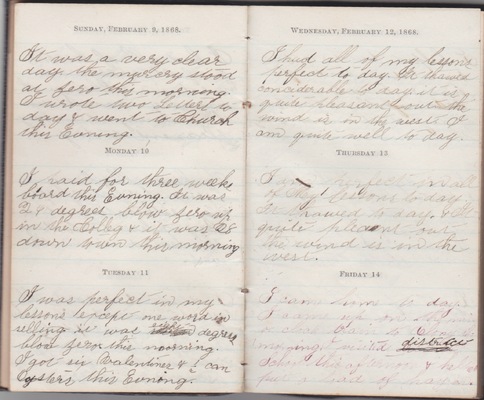 SUNDAY, FEBRUARY 9, 1868.
It was a very clear
day the mercry stood
at zero this morning.
I wrote two Letters to
day & went to Church
this Evening.
MONDAY 10
I paid for three weeks
board this Evning. It was
24 degrees below zero up
in the Coleg & it was 28
down town this morning
TUESDAY 11
I was perfect in my
lessons except one word in
it was degrees
blow zero this morning.
I got six Valentines & 1 can
Oysters this Evning.
WEDNESDAY, FEBRUARY 12, 1868.
I had all of my lessons
perfect to day. It thawed
considerable to day. it is
quite pleasant but the
wind is in the west. I
am quite well to day.
THURSDAY 13
I am perfect in all
of my lessons to day
It thawed to day. & it
quite pleasant but
the wind is in the
west.
FRIDAY 14
I came home to day.
I came up on the
morning & visited district
School this afternoon & he